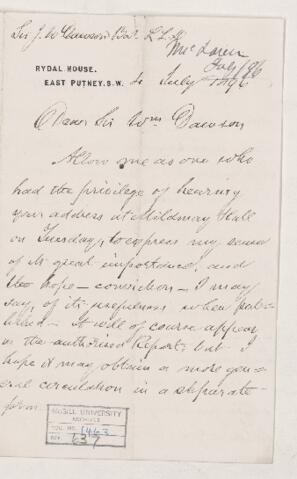 Sir J. W Dawson Bart L.L.D
McLaren
July/96
RYDAL HOUSE.
EAST PUTNEY. S.W.
4 July 1896
Dear Sir Wm Dawson
Allow me as one who
had the privilege of hearing
your address at Mildmay Hall
on Tuesday, to express my sense
of its great importance, and
the hope – conviction – I may
say, of its usefulness when pub-
lished – It will of course appear
in the authorised Report, but I
hope it may obtain a more gen-
eral circulation in a separate
form
McGILL UNIVERSITY
ARCHIVES
ACC. NO. 1463
REF. 637